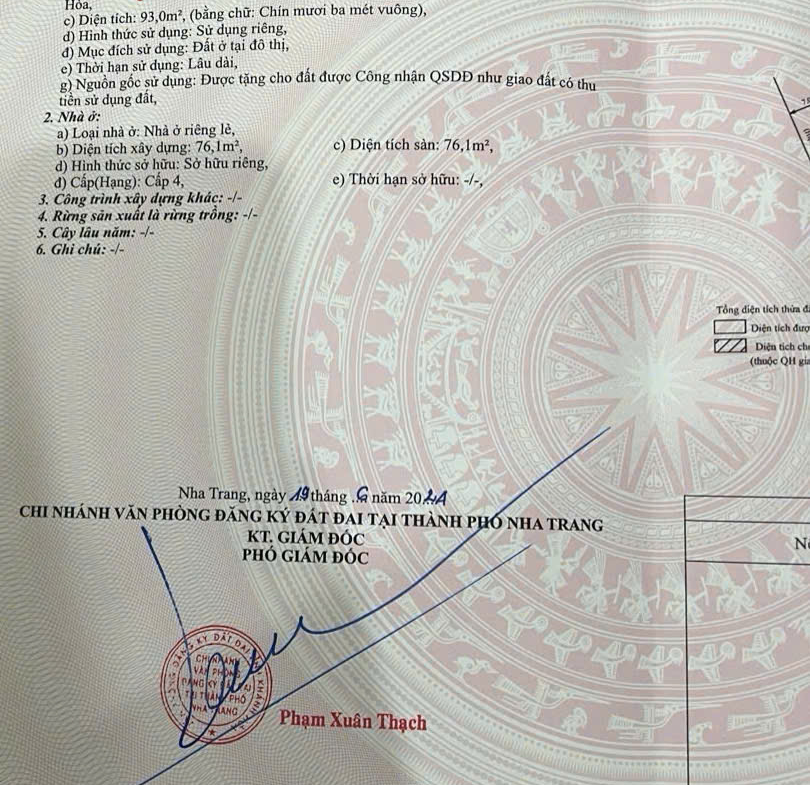 Hòa,
c) Diện tích: 93,0m², (bằng chữ: Chín mươi ba mét vuông),
d) Hình thức sử dụng: Sử dụng riêng,
đ) Mục đích sử dụng: Đất ở tại đô thị,
e) Thời hạn sử dụng: Lâu dài,
g) Nguồn gốc sử dụng: Được tặng cho đất được Công nhận QSDĐ như giao đất có thu
tiền sử dụng đất,
2. Nhà ở:
a) Loại nhà ở: Nhà ở riêng lẻ,
b) Diện tích xây dựng: 76,1m², c) Diện tích sàn: 76,1m²,
d) Hình thức sở hữu: Sở hữu riêng,
đ) Cấp(Hạng): Cấp 4, e) Thời hạn sở hữu: -/-,
3. Công trình xây dựng khác: -/-
4. Rừng sản xuất là rừng trồng: -/-
5. Cây lâu năm: -/-
6. Ghi chú: -/-
Tổng diện tích thửa
Diện tích
Diện tích
(thuộc QH
Nha Trang, ngày 19 tháng . năm 20
CHI NHÁNH VĂN PHÒNG ĐĂNG KÝ ĐẤT ĐAI TẠI THÀNH PHỐ NHA TRANG
KT. GIÁM ĐỐC
PHÓ GIÁM ĐỐC
CHI NHÁNH
VĂN PHÒNG
ĐĂNG KÝ
THÀNH PHỐ
NHA TRANG
Phạm Xuân Thạch